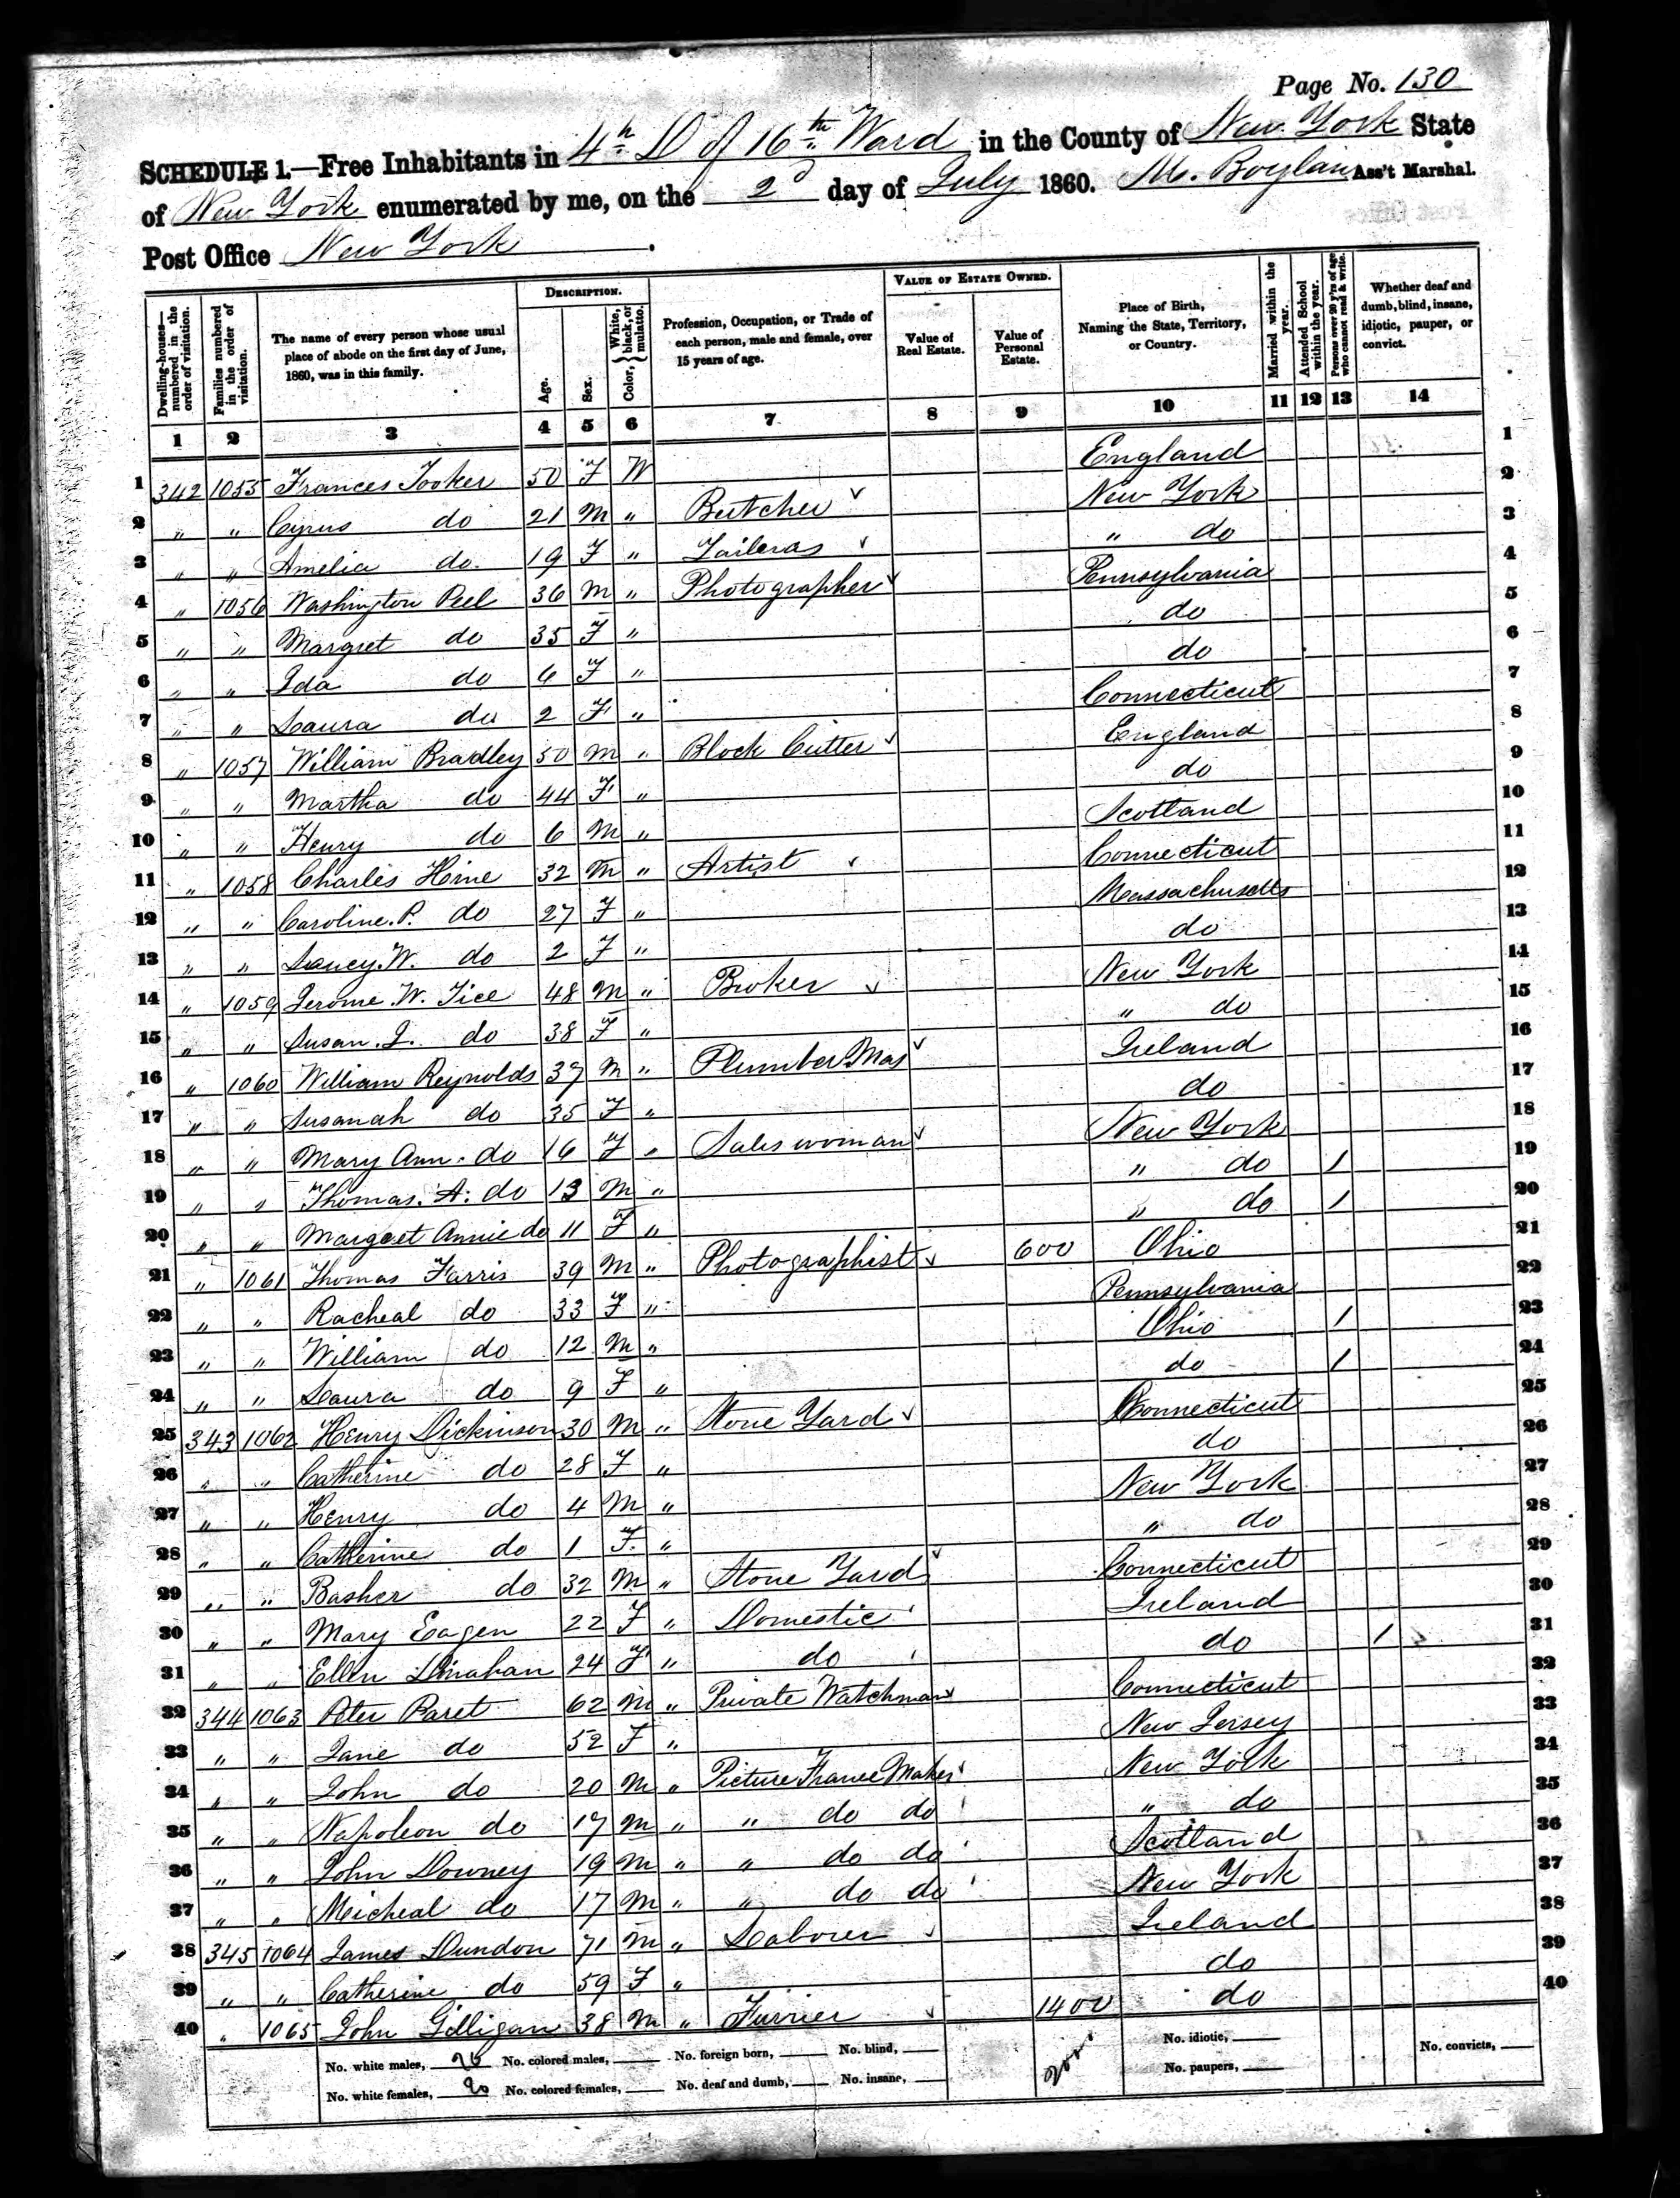 Page No. 130
SCHEDULE 1.—Free Inhabitants in 4th D of 16th Ward in the County of New York State
of New York enumerated by me, on the 2d day of July 1860. M. Boylan Ass't Marshal.
Post Office New York.
Dwelling-houses—numbered in the order of visitation. Families numbered in the order of visitation. The name of every person whose usual place of abode on the first day of June, 1860, was in this family. DESCRIPTION. Age. Sex. Color, White, black, or mulatto. Profession, Occupation, or Trade of each person, male and female, over 15 years of age. VALUE OF ESTATE OWNED. Value of Real Estate. Value of Personal Estate. Place of Birth, Naming the State, Territory, or Country. Married within the year. Attended School within the year. Persons over 20 y'rs of age who cannot read & write. Whether deaf and dumb, blind, insane, idiotic, pauper, or convict.
1 2 3 4 5 6 7 8 9 10 11 12 13 14
1 342 1055 Frances Tooker 50 F W England 1
2 " " Cyrus do 21 M " Butcher New York 2
3 " " Amelia do 19 F " Tailoras " do 3
4 " 1056 Washington Peel 36 M " Photographer Pennsylvania 4
5 " " Margret do 35 F " do 5
6 " " Ida do 6 F " do 6
7 " " Laura do 2 F " Connecticut 7
8 " 1057 William Bradley 50 M " Block Cutter England 8
9 " " Martha do 44 F " do 9
10 " " Henry do 6 M " Scotland 10
11 " 1058 Charles Hine 32 M " Artist Connecticut 11
12 " " Caroline. P. do 27 F " Massachusetts 12
13 " " Lancy. W. do 2 F " do 13
14 " 1059 Jerome. W. Tice 48 M " Broker New York 14
15 " " Susan. J. do 38 F " " do 15
16 " 1060 William Reynolds 37 M " Plumber Mas Ireland 16
17 " " Susanah do 35 F " do 17
18 " " Mary Ann. do 16 F " Sales woman New York 18
19 " " Thomas. A. do 13 M " " do 1 19
20 " " Margret Annie do 11 F " " do 1 20
21 " 1061 Thomas Farris 39 M " Photographist 600 Ohio 21
22 " " Racheal do 33 F " Pennsylvania 22
23 " " William do 12 M " Ohio 1 23
24 " " Laura do 9 F " do 1 24
25 343 1062 Henry Dickinson 30 M " Stone Yard Connecticut 25
26 " " Catherine do 28 F " do 26
27 " " Henry do 4 M " New York 27
28 " " Catherine do 1 F. " " do 28
29 " " Basher do 32 M " Stone Yard Connecticut 29
30 " " Mary Eagen 22 F " Domestic Ireland 30
31 " " Ellen Linahan 24 F " do do 1 31
32 344 1063 Peter Paret 62 M " Private Watchman Connecticut 32
33 " " Jane do 52 F " New Jersey 33
34 " " John do 20 M " Picture Frame Maker New York 34
35 " " Napoleon do 17 M " " do do " do 35
36 " " John Downey 19 M " " do do Scotland 36
37 " " Micheal do 17 M " " do do New York 37
38 345 1064 James Dundon 71 M " Laborer Ireland 38
39 " " Catherine do 59 F " do 39
40 " 1065 John Gilligan 38 M " Furrier 1400 do 40
No. white males, 20 No. colored males, No. foreign born, No. blind, 2000 No. idiotic, No. convicts,
No. white females, 20 No. colored females, No. deaf and dumb, No. insane, No. paupers,